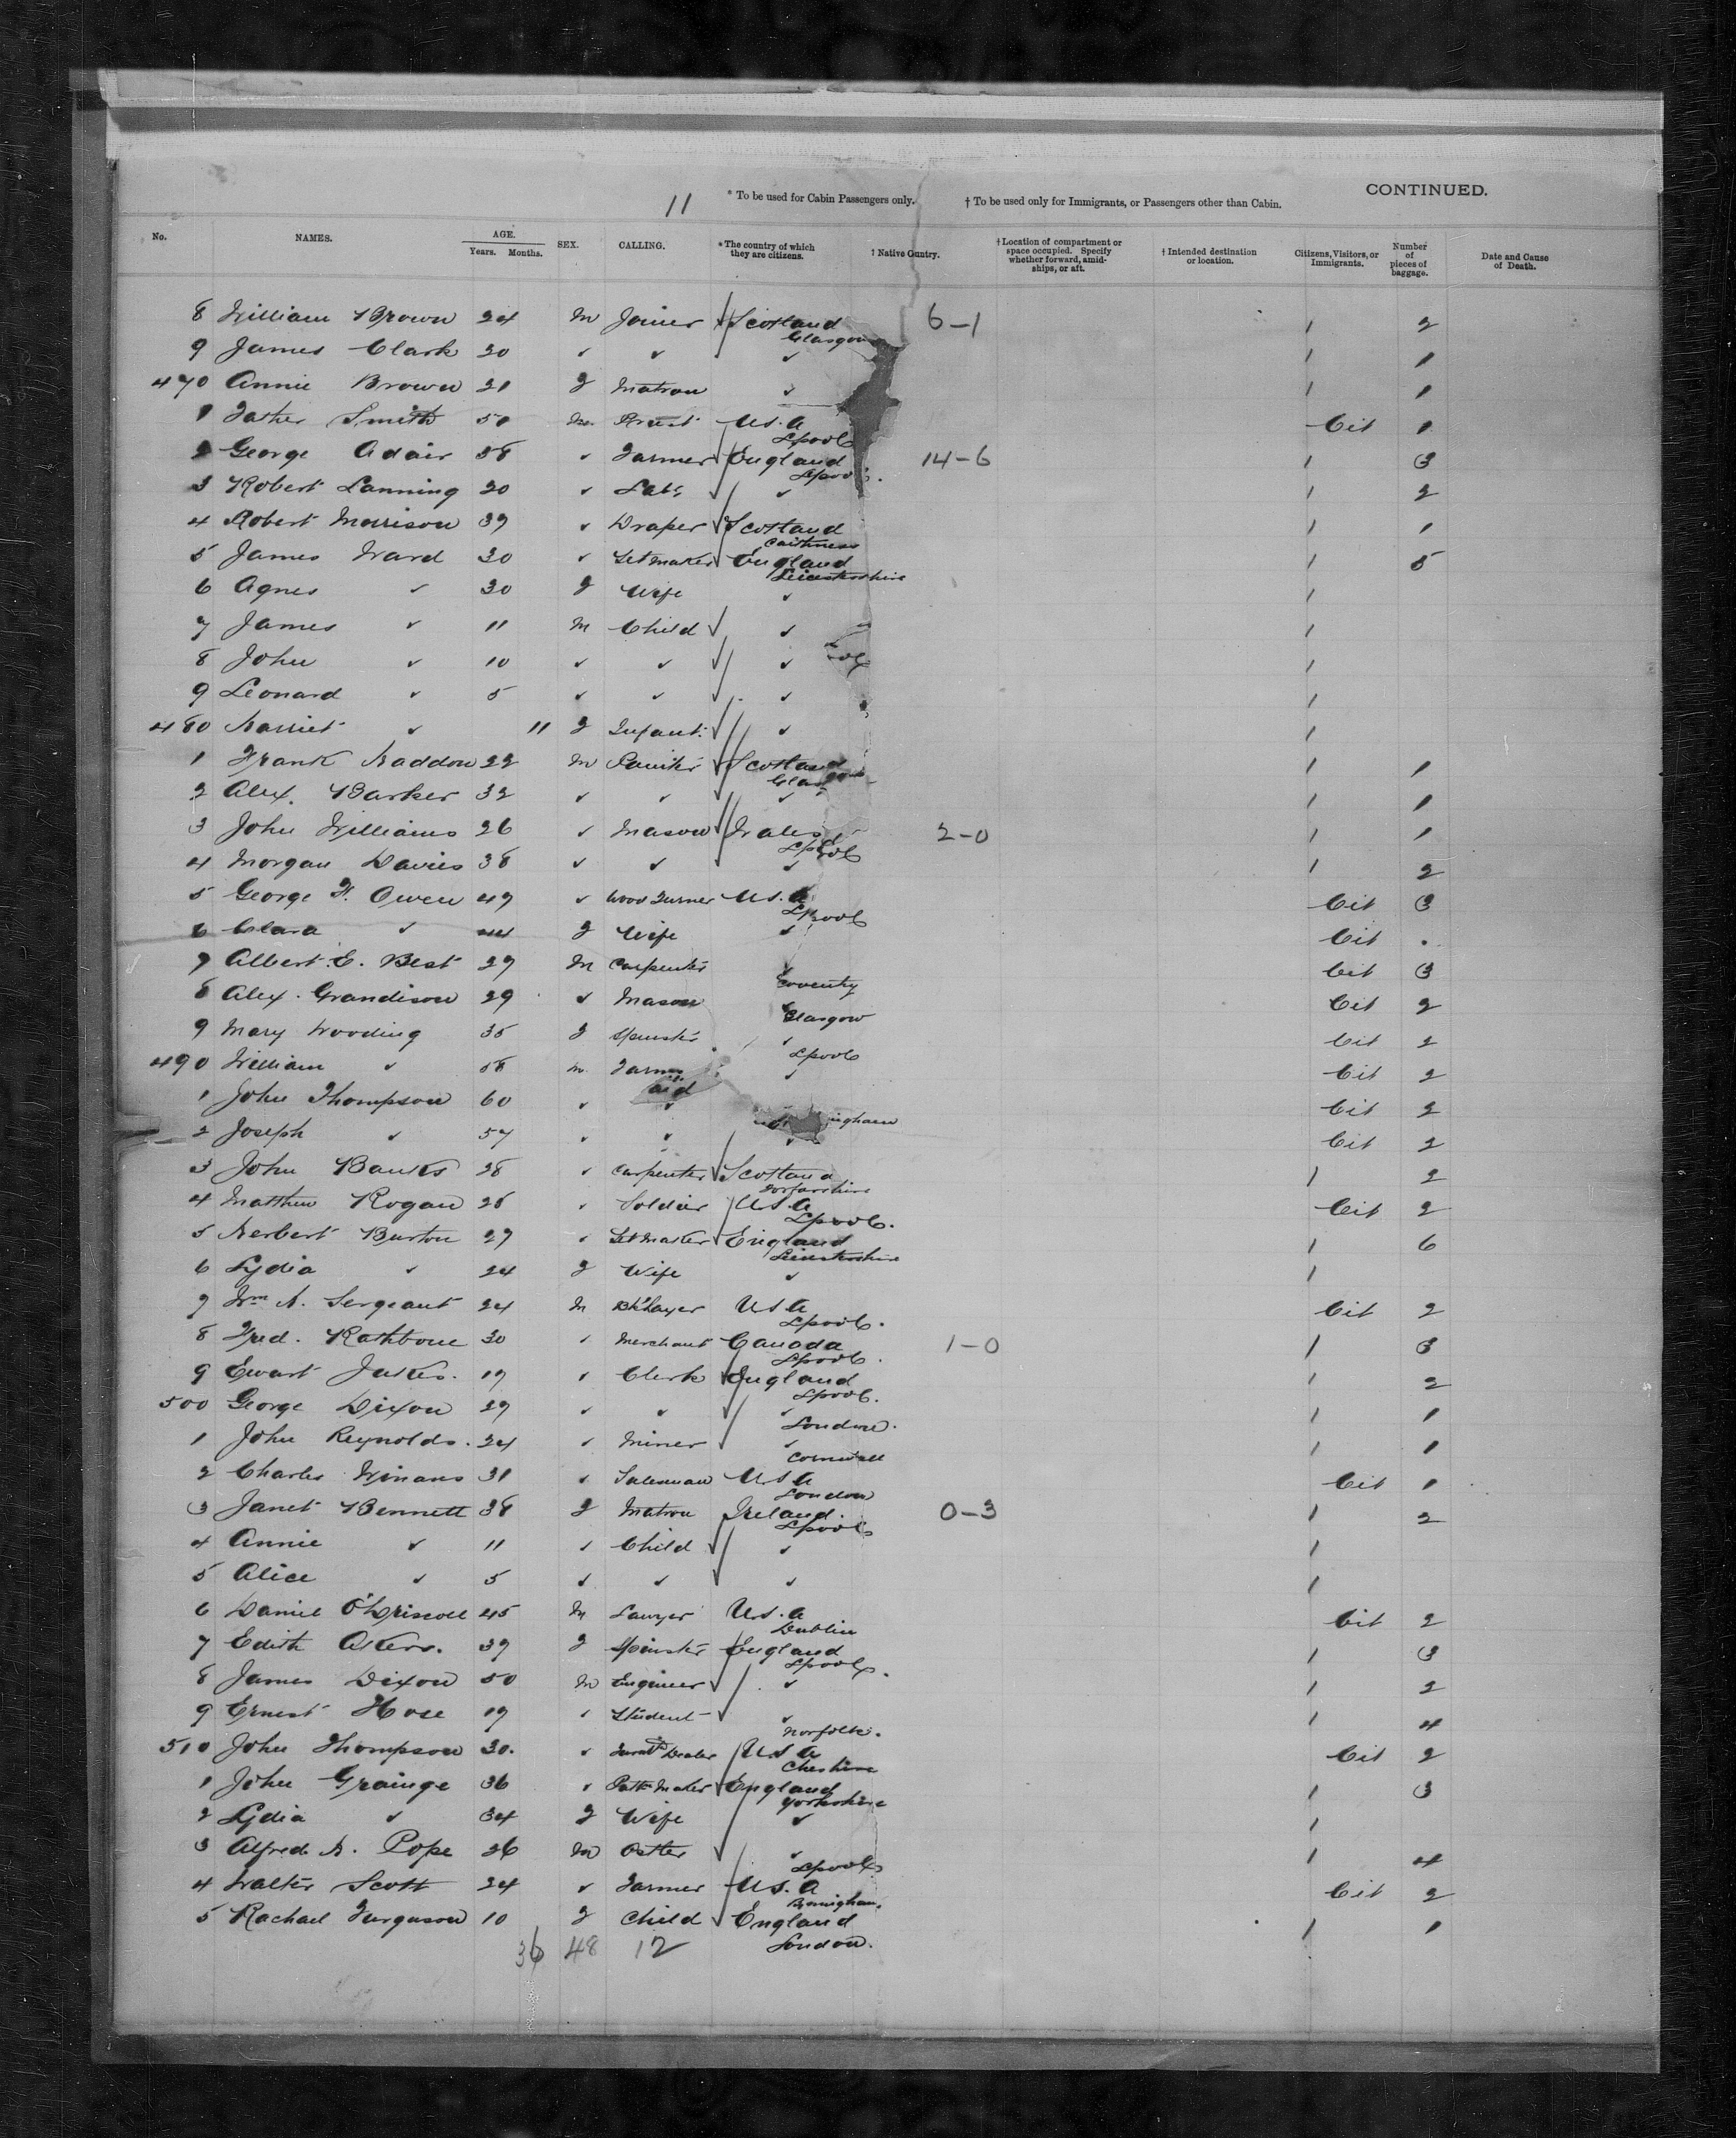 11 * To be used for Cabin Passengers only. † To be used only for Immigrants, or Passengers other than Cabin. CONTINUED.
No. NAMES. AGE. Years. Months. SEX. CALLING. * The country of which they are citizens. † Native Country. † Location of compartment or space occupied. Specify whether forward, amidships, or aft. † Intended destination or location. Citizens, Visitors, or Immigrants. Number of pieces of baggage. Date and Cause of Death.
8 William Brown 24 M Joiner Scotland 6-1 1 2
Glasgow
9 James Clark 20 ✓ ✓ ✓ 1 1
470 Annie Brown 21 F Matron ✓ 1 1
1 Father Smith 50 M Priest U.S.A Cit 1
Lpool
2 George Adair 38 ✓ Farmer England 14-6 1 3
Lpool
3 Robert Lanning 20 ✓ Labr ✓ 1 2
4 Robert Morrison 39 ✓ Draper Scotland 1 1
Caithness
5 James Ward 30 ✓ England 1 5
Leicestershire
6 Agnes ✓ 30 F Wife ✓ 1
7 James ✓ 11 M Child ✓ 1
8 John ✓ 10 ✓ ✓ ✓ 1
9 Leonard ✓ 5 ✓ ✓ ✓ 1
480 Harriet ✓ 11 F Infant ✓ 1
1 Frank Haddow 22 M Painter Scotland 1 1
Glasgow
2 Alex. Barker 32 ✓ ✓ ✓ 1 1
3 John Williams 26 ✓ Mason Wales 2-0 1 1
Lpool
4 Morgan Davies 38 ✓ ✓ ✓ 1 2
5 George F. Owen 49 ✓ Wood Turner U.S.A Cit 3
Lpool
6 Clara ✓ 44 F Wife ✓ Cit .
7 Albert E. Best 29 M Carpenter Cit 3
Coventry
8 Alex. Grandison 29 ✓ Mason Cit 2
Glasgow
9 Mary Wooding 35 F Spinster ✓ Cit 2
Lpool
490 William ✓ 58 M Farmer ✓ Cit 2
1 John Thompson 60 ✓ ✓ Cit 2
ingham
2 Joseph ✓ 57 ✓ ✓ ✓ Cit 2
3 John Banks 28 ✓ Carpenter Scotland 1 2
Forfarshire
4 Matthew Rogan 28 ✓ Soldier U.S.A Cit 2
Lpool.
5 Herbert Burton 27 ✓ England 1 6
Leicestershire
6 Lydia ✓ 24 F Wife ✓ 1
7 Wm H. Sergeant 24 M Bklayer U.S.A Cit 2
Lpool.
8 Fred. Rathbone 30 ✓ Merchant Canada 1-0 1 3
Lpool.
9 Ewart Jukes. 19 ✓ Clerk England 1 2
Lpool.
500 George Dixon 29 ✓ ✓ ✓ 1 1
London.
1 John Reynolds. 24 ✓ Miner ✓ 1 1
Cornwall
2 Charles Winans 31 ✓ Salesman U.S.A Cit 1
London
3 Janet Bennett 38 F Matron Ireland. 0-3 1 2
Lpool
4 Annie ✓ 11 ✓ Child ✓ 1
5 Alice ✓ 5 ✓ ✓ ✓ 1
6 Daniel O'Driscoll 45 M Lawyer U.S.A Cit 2
Dublin
7 Edith Akers. 39 F Spinster England 1 3
Lpool.
8 James Dixon 50 M Engineer ✓ 1 2
9 Ernest Hose 19 ✓ Student ✓ 1 4
Norfolk.
510 John Thompson 30. ✓ Dealer U.S.A Cit 2
Cheshire
1 John Grainge 36 ✓ England 1 3
Yorkshire
2 Lydia ✓ 34 F Wife ✓ 1
3 Alfred H. Pope 26 M Ostler ✓ 1 4
Lpool
4 Walter Scott 24 ✓ Farmer U.S.A Cit 2
5 Rachael Ferguson 10 F Child England 1 1
London.
36 48 12